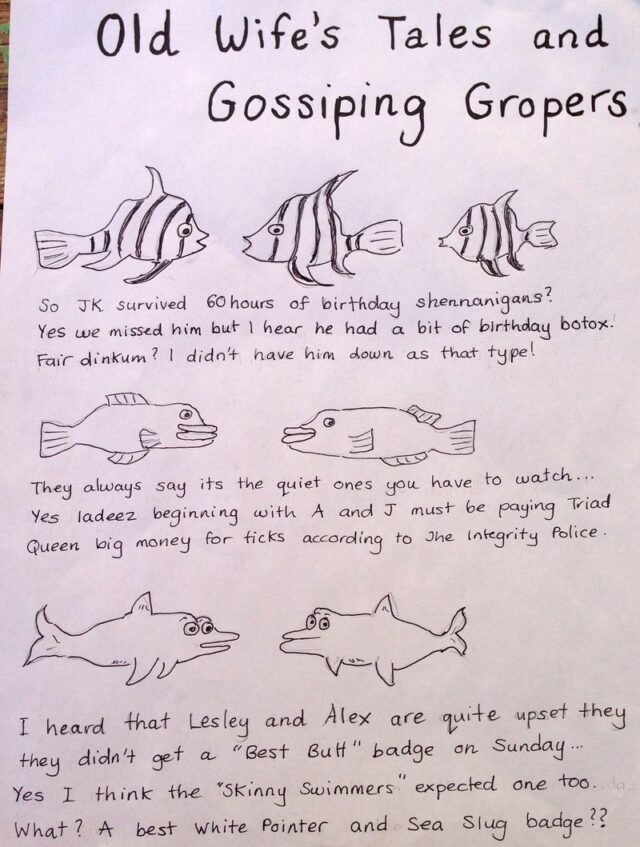 Old Wife's Tales and
Gossiping Gropers
So JK survived 60 hours of birthday shennanigans?
Yes we missed him but I hear he had a bit of birthday botox.
Fair dinkum? I didn't have him down as that type!
They always say its the quiet ones you have to watch...
Yes ladeez beginning with A and J must be paying Triad
Queen big money for ticks according to Jhe Integrity Police.
I heard that Lesley and Alex are quite upset they
they didn't get a "Best Butt" badge on Sunday...
Yes I think the "Skinny Swimmers" expected one too.
What? A best White Pointer and Sea Slug badge??